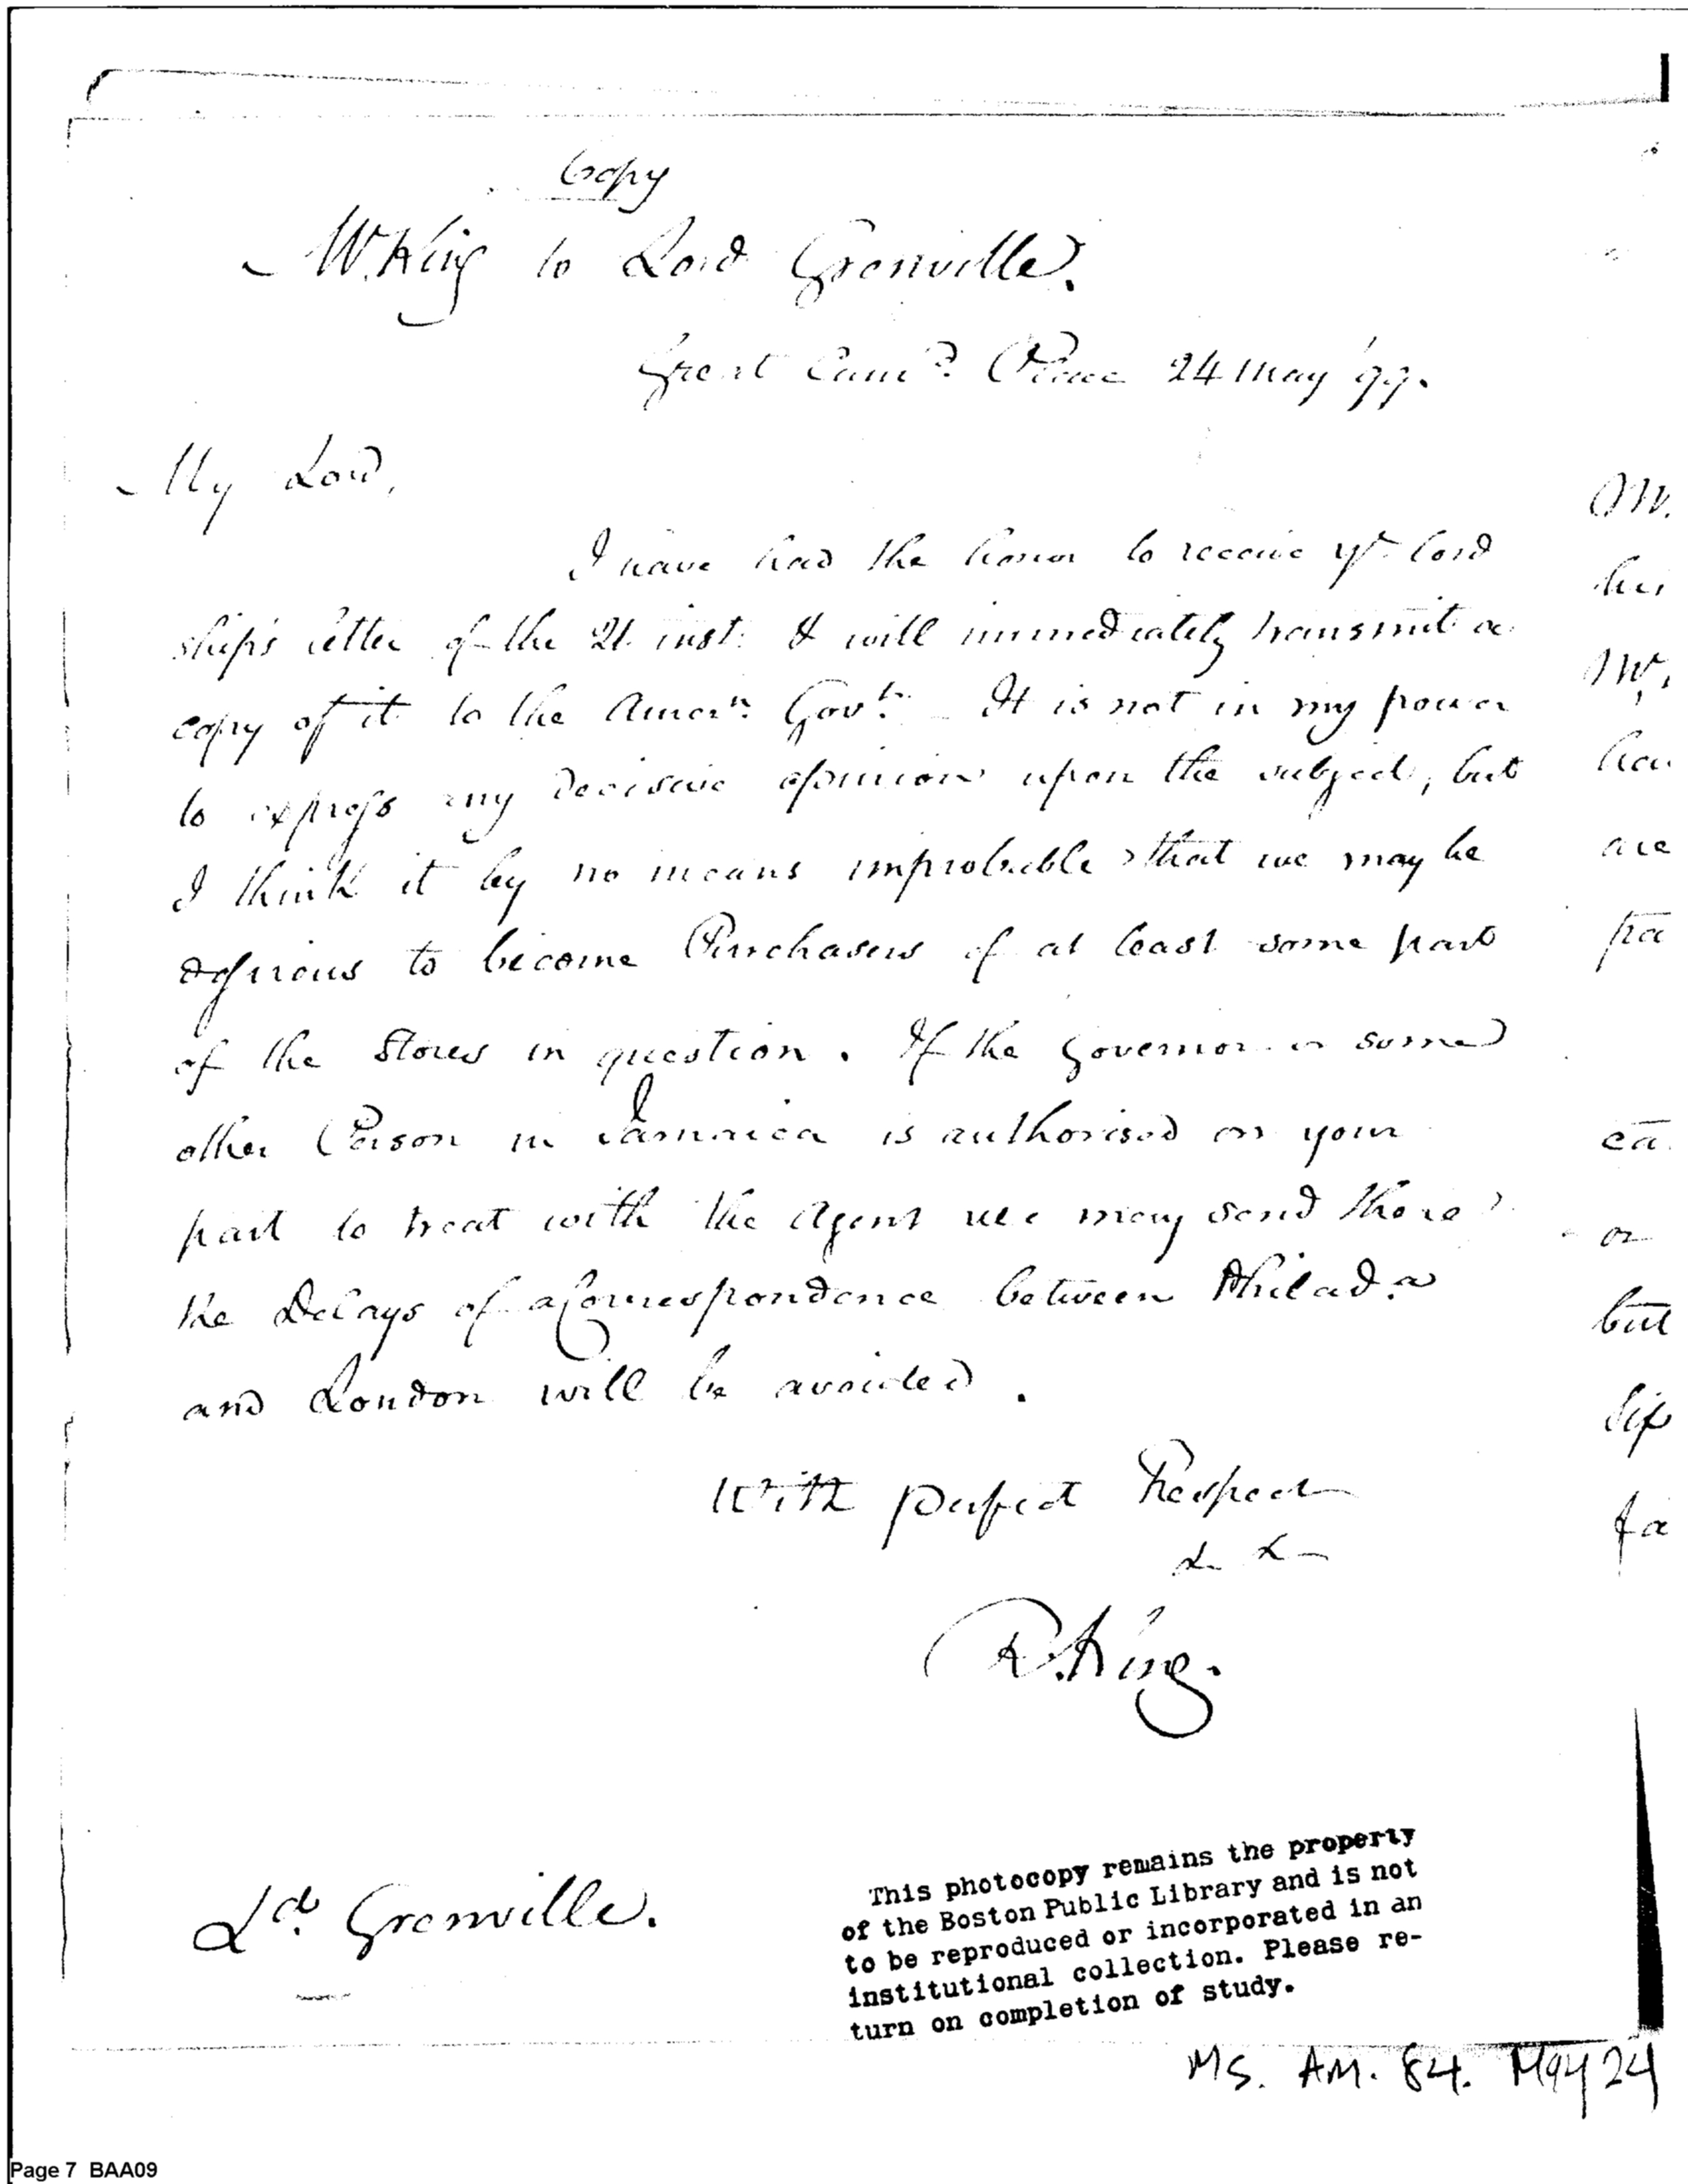 Copy
Mr. King to Lord Grenville.
Great Cumd. Place 24 May '99.
My Lord,
I have had the honor to receive yr. lord
ship's letter of the 21. inst. & will immediately transmit a
copy of it to the Amern. Govt. It is not in my power
to express any decisive opinion upon the subject, but
I think it by no means improbable that we may be
desirous to become Purchasers of at least some part
of the Stores in question. If the Governor or some
other Person in Jamaica is authorised on your
part to treat with the Agent we may send there
the Delays of a Correspondence between Philada.
and London will be avoided.
With perfect Respect
& &
R. King.
Ld. Grenville.
This photocopy remains the property
of the Boston Public Library and is not
to be reproduced or incorporated in an
institutional collection. Please re-
turn on completion of study.
MS. AM. 84. May 24
Page 7 BAA09